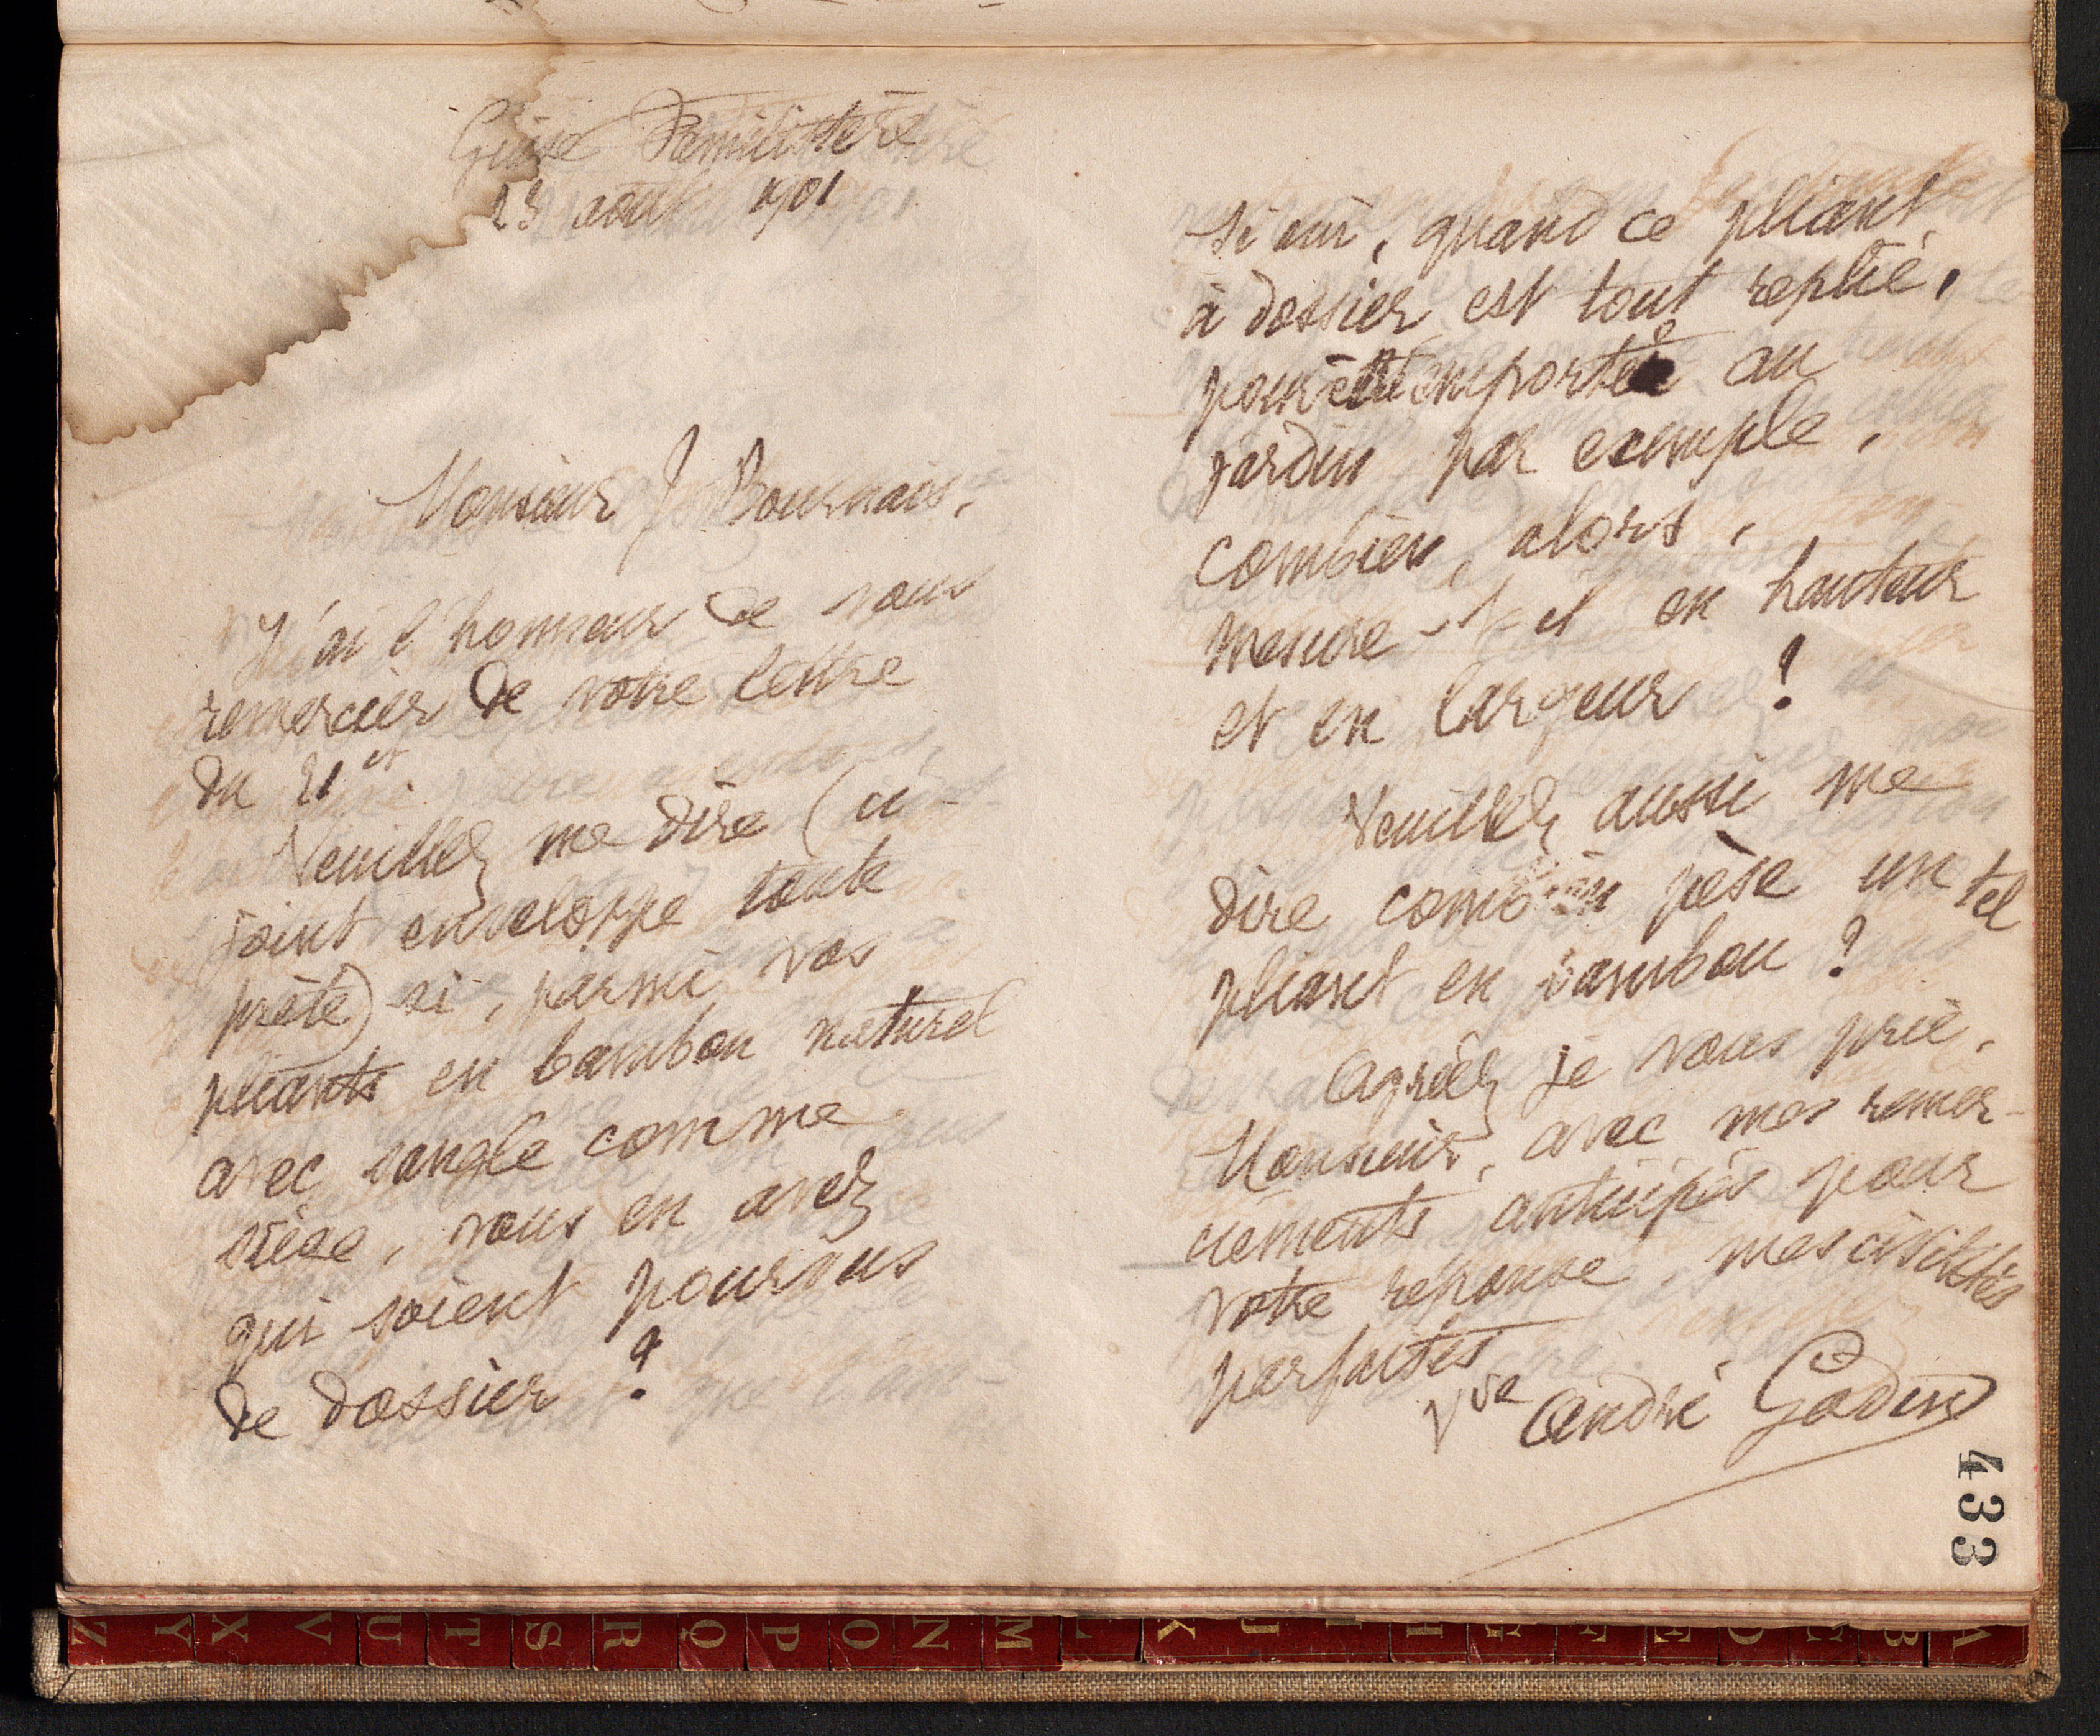 Guise Familistère
23 août 1901
Monsieur J. Bournais,
J'ai l'honneur de vous
remercier de votre lettre
du 21 ct.
Veuillez me dire (ci-
joint enveloppe toute
prête) si, parmi vos
pliants en bambou naturel
avec sangle comme
siège, vous en avez
qui soient pourvus
de dossier ?
Si oui, quand ce pliant
à dossier est tout replié,
pour être emporté au
jardin par exemple,
combien, alors,
mesure-t-il en hauteur
et en largeur ?
Veuillez aussi me
dire combien pèse un tel
pliant en bambou ?
Agréez je vous prie,
Monsieur, avec mes remer-
ciements anticipés pour
votre réponse, mes civilités
parfaites
Vve André Godin
433
Z Y X V U T S R Q P O N M L K J I H G F E D C B A